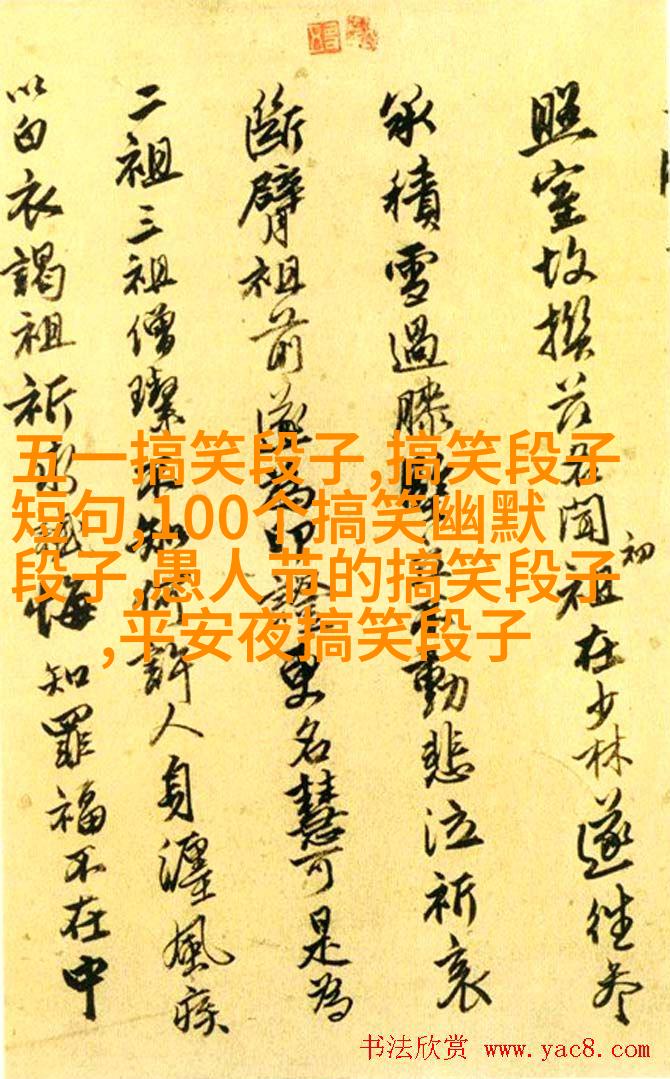 照室故撰聞祖在少林遂往參
初
承積雪過膝不動悲泣祈哀
斷臂祖前遂為印證更名慧可是為
二祖三祖僧璨不知何許人身纏風疾
以白衣謁祖祈求懺悔知罪福不在中
五一搞笑段子,搞笑段子
短句,100个搞笑幽默
段子,愚人节的搞笑段子
,平安夜搞笑段子
书法欣赏 www.yac8.com